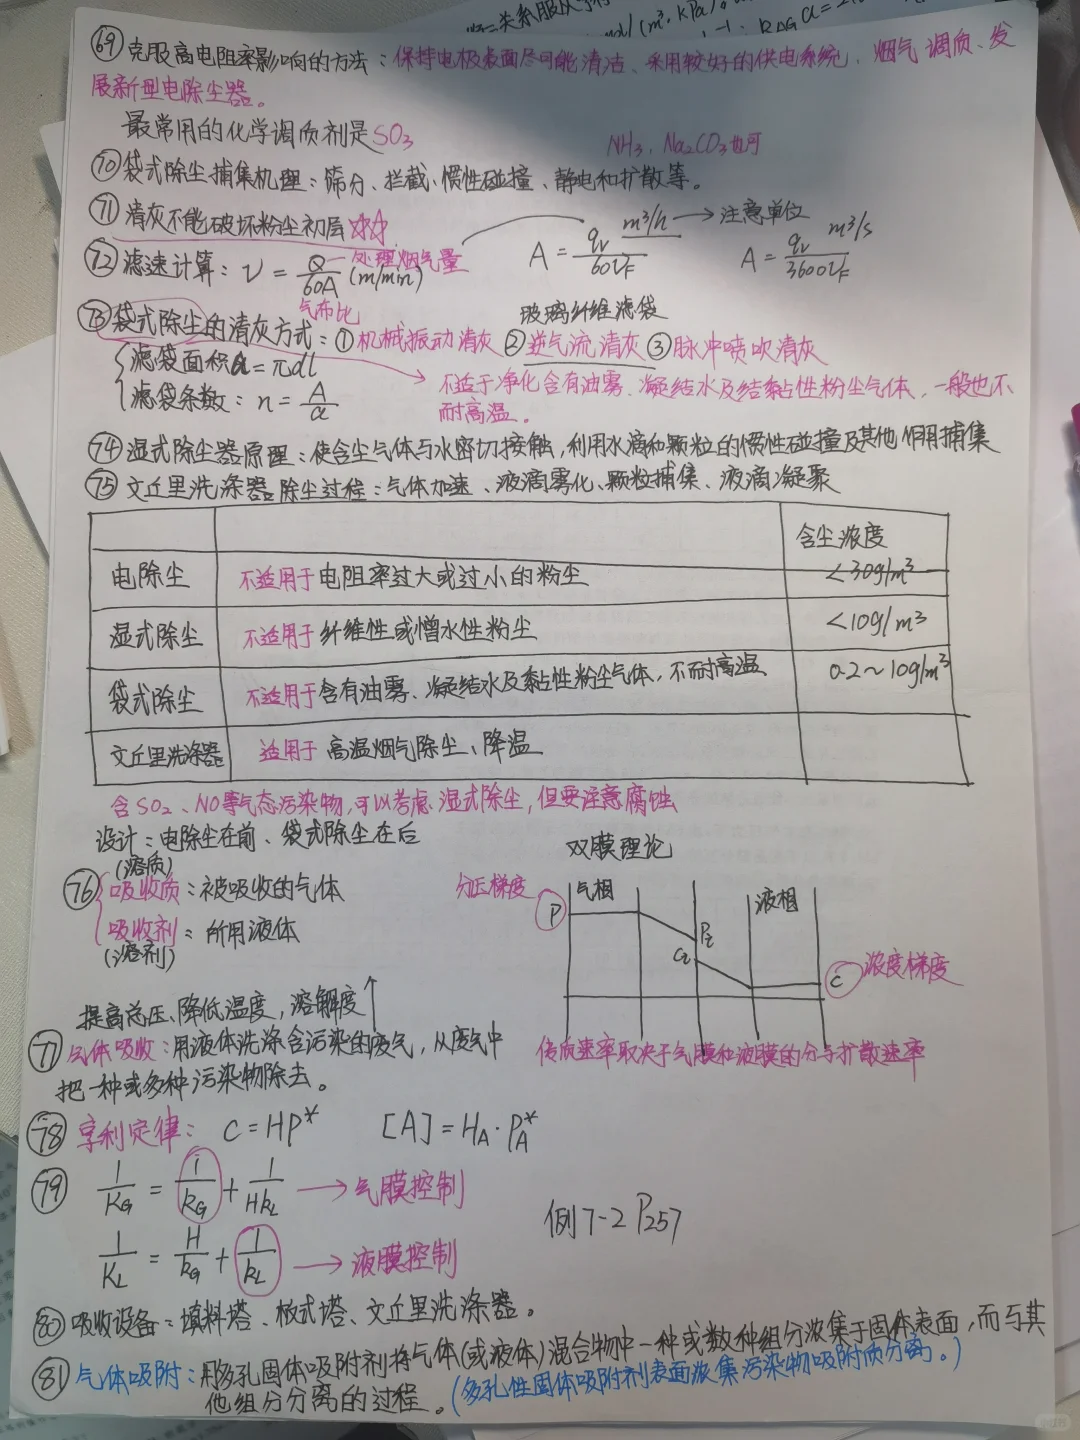 ㊴克服高电阻率影响的方法：保持电极表面尽可能清洁、采用较好的供电系统、烟气调质、发
展新型电除尘器。
最常用的化学调质剂是SO₃ NH₃、Na₂CO₃也可
⑦⓪袋式除尘捕集机理：筛分、拦截、惯性碰撞、静电和扩散等。
⑦①清灰不能破坏粉尘初层☆☆
m³/h → 注意单位
⑦②滤速计算：v = Q/60A (m/min) 处理烟气量 A = qv/60vF A = qv/3600vF m³/s
气布比 玻璃纤维滤袋
⑦③袋式除尘的清灰方式：①机械振动清灰 ②逆气流清灰 ③脉冲喷吹清灰
滤袋面积a = πdl
→ 不适于净化含有油雾、凝结水及结黏性粉尘气体，一般也不
滤袋条数：n = A/a
耐高温。
⑦④湿式除尘器原理：使含尘气体与水密切接触，利用水滴和颗粒的惯性碰撞及其他作用捕集
⑦⑤文丘里洗涤器除尘过程：气体加速、液滴雾化、颗粒捕集、液滴凝聚
含尘浓度
电除尘 不适用于电阻率过大或过小的粉尘 <30g/m³
湿式除尘 不适用于纤维性或憎水性粉尘 <10g/m³
袋式除尘 不适用于含有油雾、凝结水及黏性粉尘气体，不耐高温 0.2~10g/m³
文丘里洗涤器 适用于 高温烟气除尘、降温
含SO₂、NO等气态污染物，可以考虑湿式除尘，但要注意腐蚀
设计：电除尘在前、袋式除尘在后
双膜理论
(溶质)
⑦⑥吸收质：被吸收的气体
吸收剂：所用液体
(溶剂)
分压梯度 P 气相 液相
Pi
Ci
C 浓度梯度
提高总压、降低温度，溶解度↑
⑦⑦气体吸收：用液体洗涤含污染的废气，从废气中
传质速率取决于气膜和液膜的分子扩散速率
把一种或多种污染物除去。
⑦⑧亨利定律：C = HP* [A] = HA·PA*
⑦⑨ 1/KG = 1/kG + 1/HkL → 气膜控制
例7-2 P257
1/KL = H/kG + 1/kL → 液膜控制
⑧⓪吸收设备：填料塔、板式塔、文丘里洗涤器。
⑧①气体吸附：用多孔固体吸附剂将气体(或液体)混合物中一种或数种组分浓集于固体表面，而与其
他组分分离的过程。(多孔性固体吸附剂表面浓集污染物吸附质分离。)